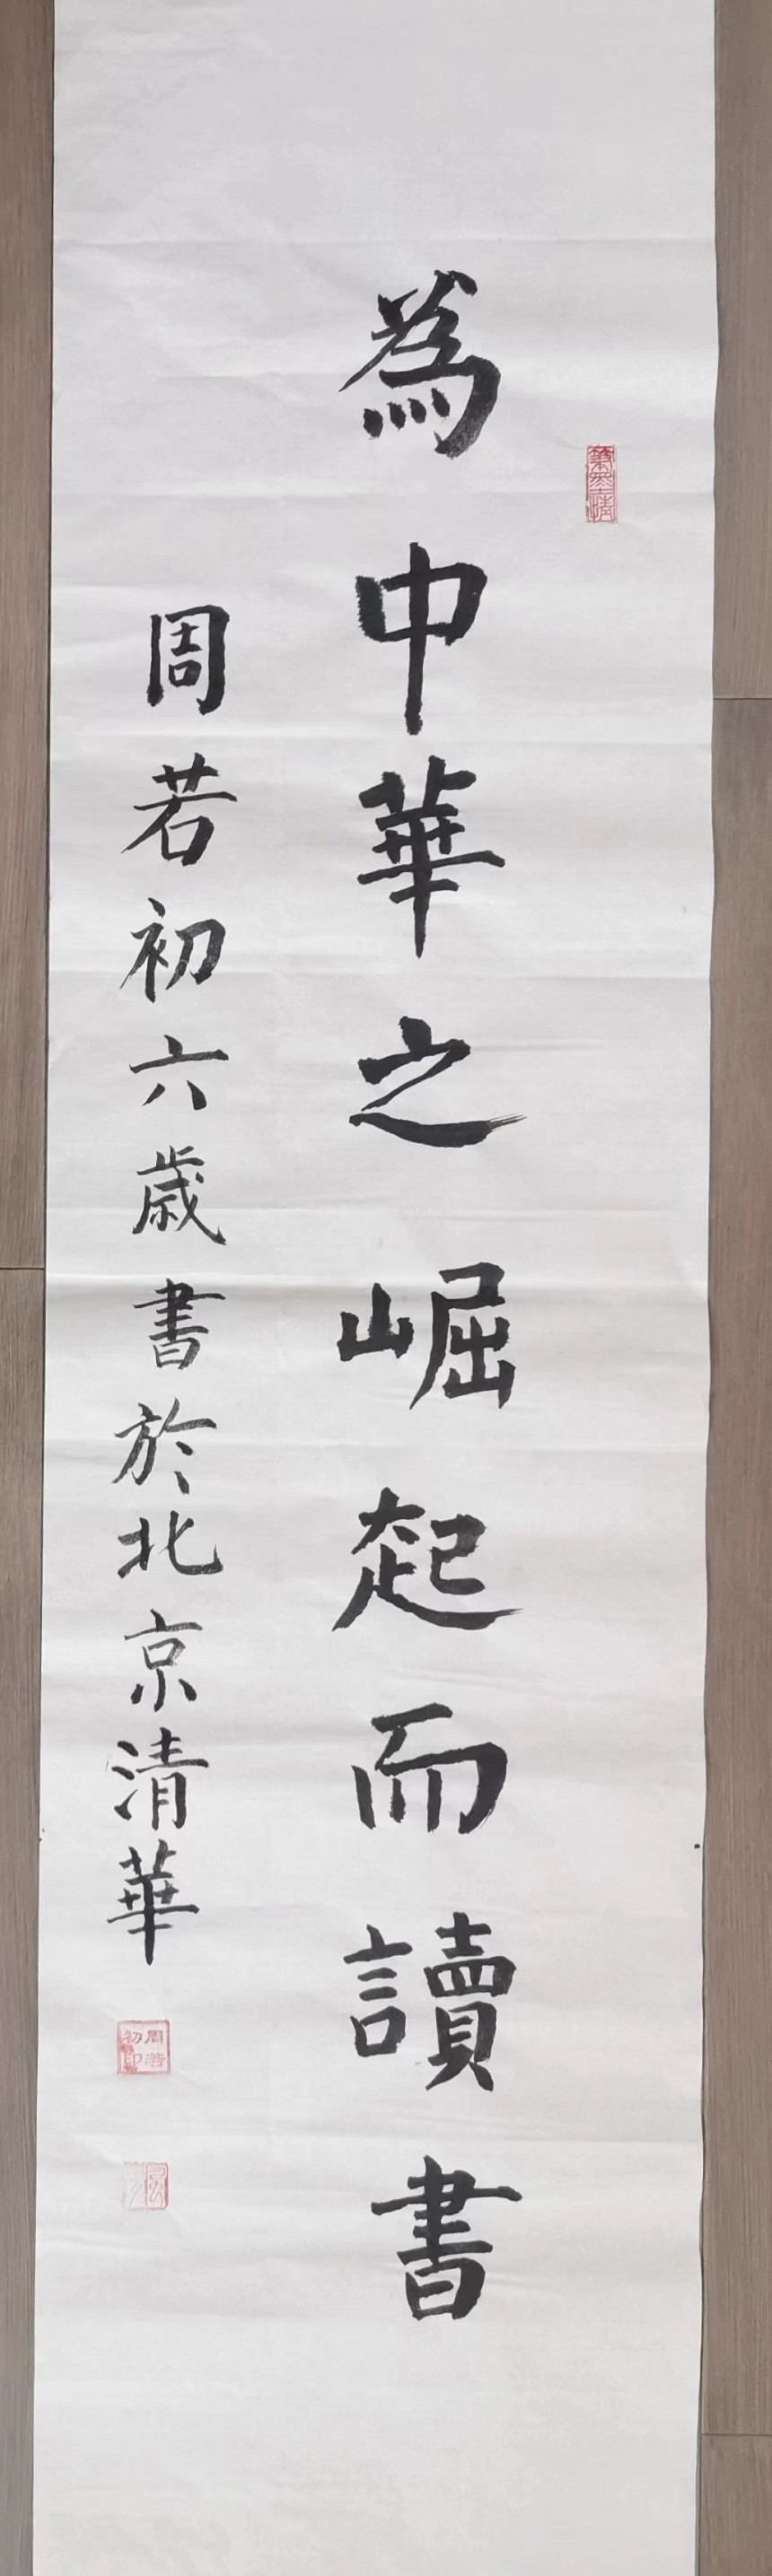 為中華之崛起而讀書
周若初六歲書於北京清華
周若初印